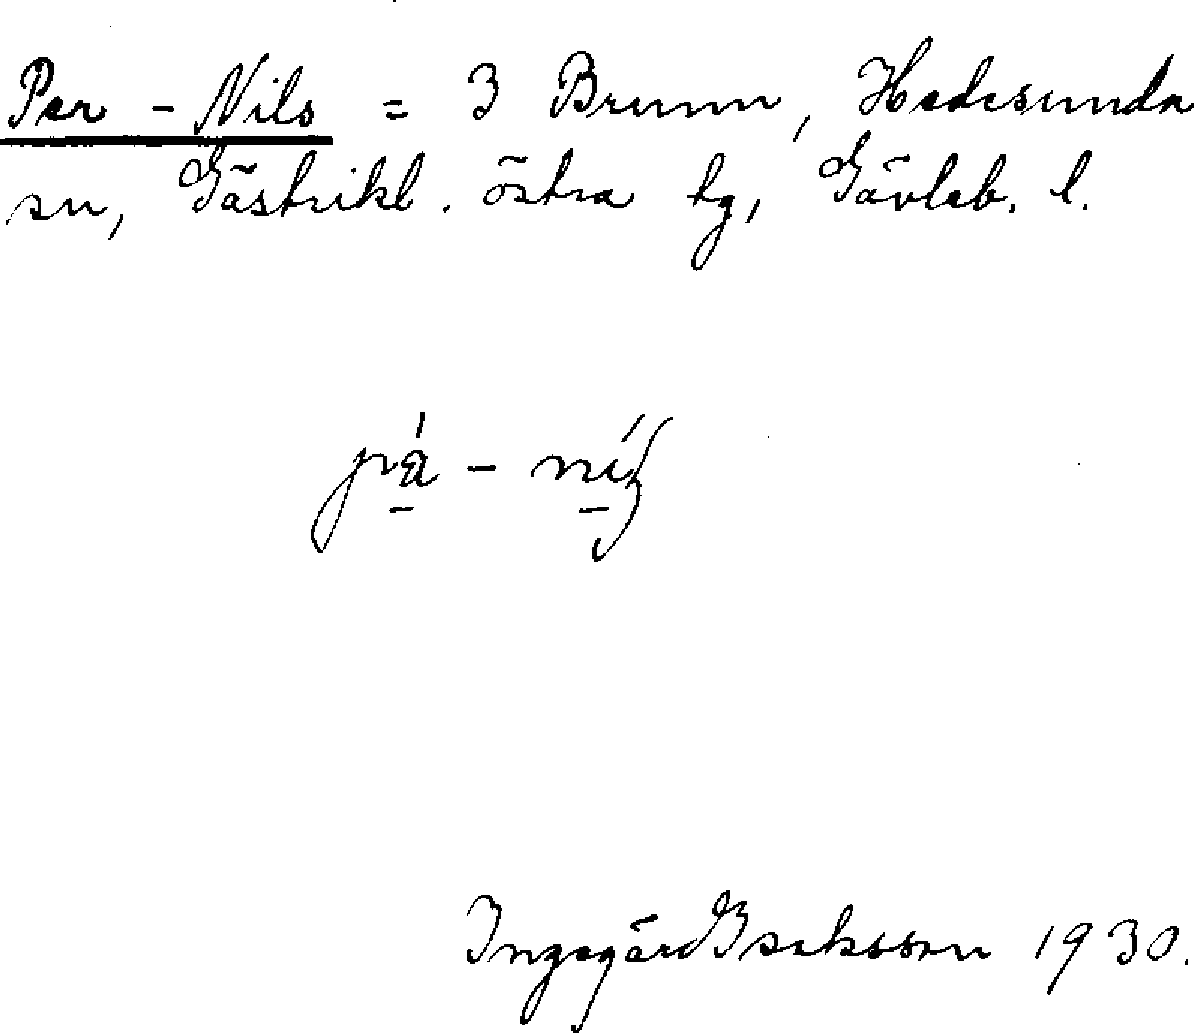 Per - Nils = 3 Brunn, Hedesunda
sn, Gästrikl. östra tg, Gävleb. l.
Ingegärd Isaksson 1930.